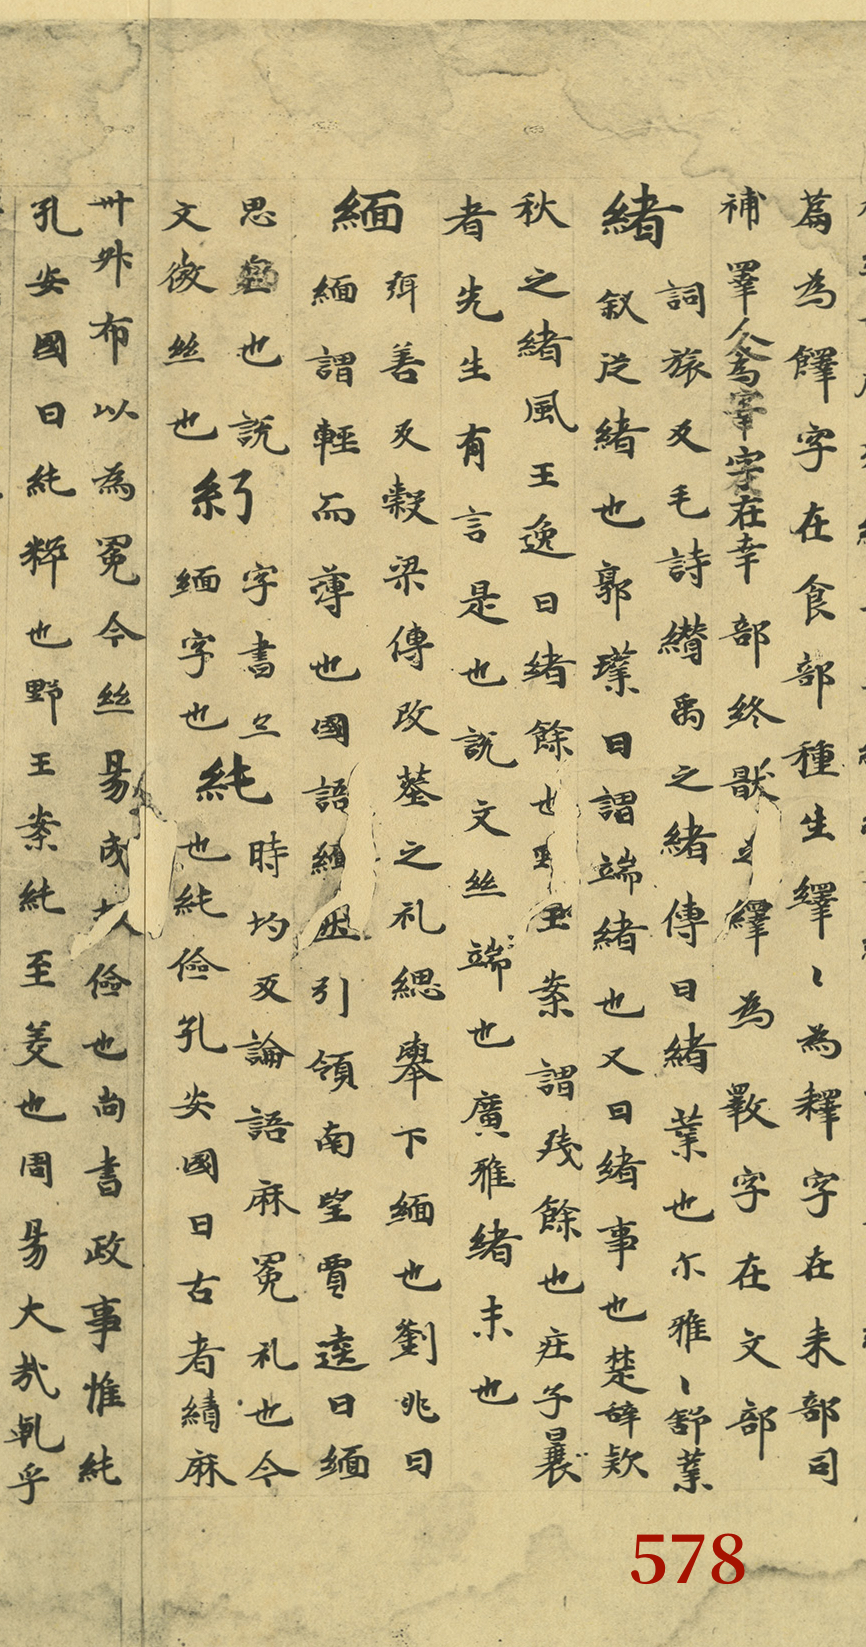 篇為饆字在食部種生繹〻為釋字在耒部司
補睪人為字字在幸部終猒之繹為斁字在文部
緒詞旅反毛詩纘禹之緒傳曰緒業也尒雅〻舒業
叙從緒也郭璞曰謂端緒也又曰緒事也楚辞欵
秋之緒風王逸曰緒餘也野王案謂残餘也庄子曩
者先生有言是也說文丝端也廣雅緒末也
緬弭善反榖梁傳改葬之礼緦舉下緬也劉兆曰
緬謂輕而薄也國語緬然引領南望賈逵曰緬
思皃也說
文微丝也
糿字書亦
緬字也
純時均反論語麻冕礼也今
也純儉孔安國曰古者績麻
卅升布以為冕今丝易成故儉也尚書政事惟純
孔安國曰純粹也野王案純至美也周易大哉乹乎
578